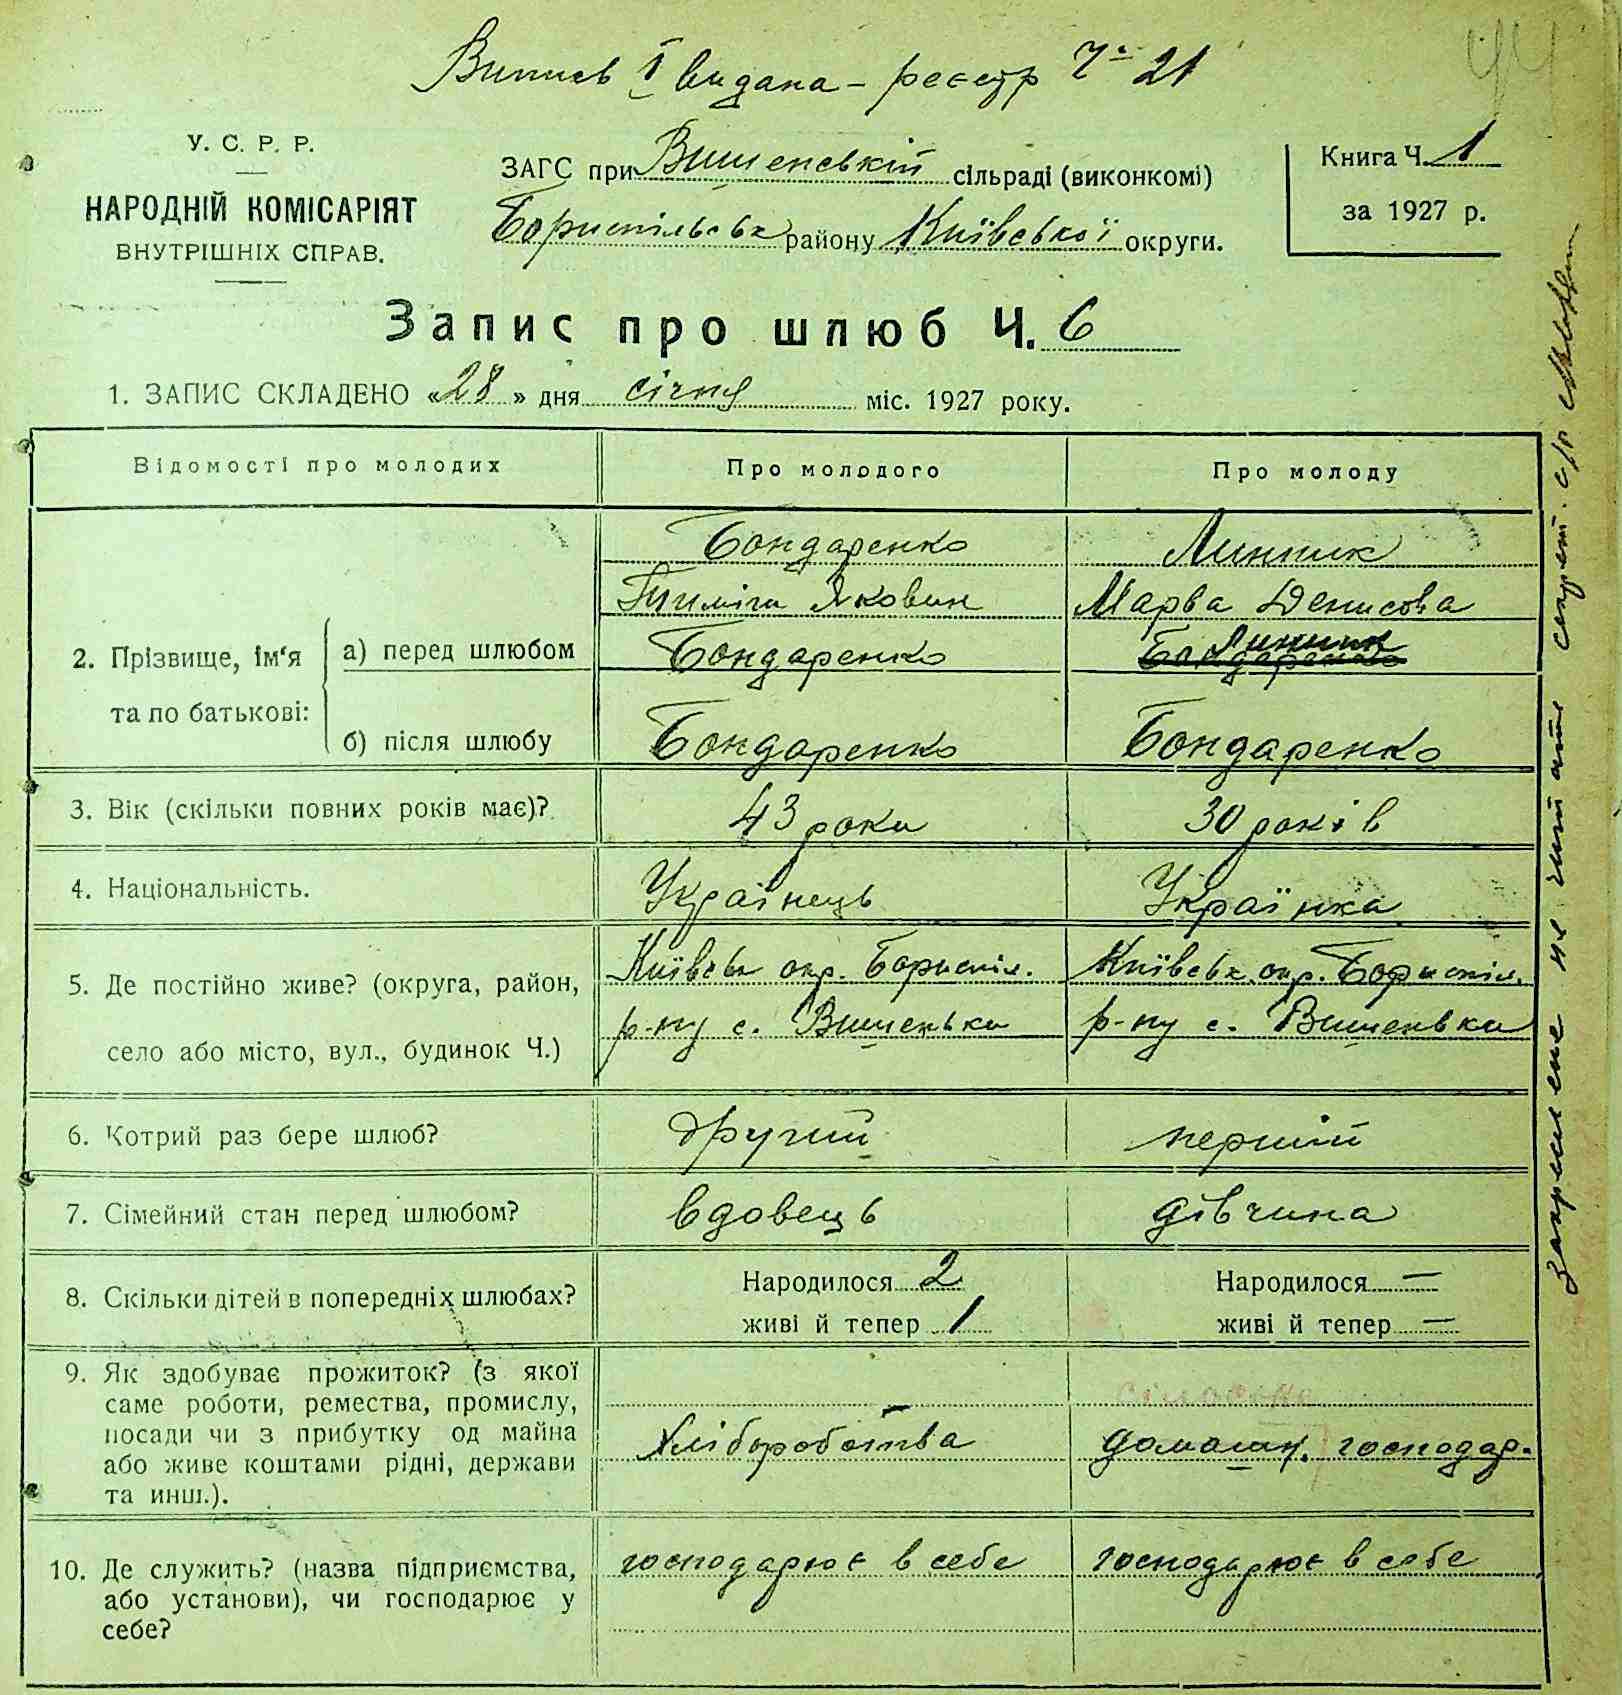 Випись І видана - реєстр Ч 21
У. С. Р. Р.
НАРОДНІЙ КОМІСАРІЯТ
ВНУТРІШНІХ СПРАВ.
ЗАГС при Вишенській сільраді (виконкомі)
Бориспільськ району Київської округи.
Книга Ч. 1
за 1927 р.
Запис про шлюб Ч. 6
1. ЗАПИС СКЛАДЕНО «28» дня січня міс. 1927 року.
Відомості про молодих
Про молодого
Про молоду
2. Прізвище, ім'я
та по батькові:
Бондаренко
Линник
Якович
Марва Денисова
а) перед шлюбом
Бондаренко
Бондаренко Линник
б) після шлюбу
Бондаренко
Бондаренко
3. Вік (скільки повних років має)?
43 роки
30 років
4. Національність.
Українець
Українка
5. Де постійно живе? (округа, район,
село або місто, вул., будинок Ч.)
Київськ окр. Бориспіл.
р-ну с. Вишеньки
Київськ. окр. Бориспіл.
р-ну с. Вишеньки
6. Котрий раз бере шлюб?
другий
перший
7. Сімейний стан перед шлюбом?
вдовець
дівчина
8. Скільки дітей в попередніх шлюбах?
Народилося 2
живі й тепер 1
Народилося —
живі й тепер —
9. Як здобуває прожиток? (з якої
саме роботи, ремества, промислу,
посади чи з прибутку од майна
або живе коштами рідні, держави
та инш.).
Хліборобства
домашн. господар.
10. Де служить? (назва підприємства,
або установи), чи господарює у
себе?
господарює в себе
господарює в себе
закреслене не читати секрет. с/р